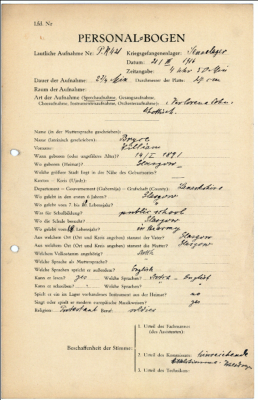 Lfd. Nr
PERSONAL-BOGEN
Lautliche Aufnahme Nr.: P.K. 421 Kriegsgefangenenlager:
Datum: 1916
Zeitangabe: 4 Uhr
Dauer der Aufnahme: 2 3/4 Min Durchmesser der Platte: 27 cm
Raum der Aufnahme:
Art der Aufnahme (Sprechaufnahme, Gesangsaufnahme,
Choraufnahme, Instrumentenaufnahme, Orchesteraufnahme):
Name (in der Muttersprache geschrieben):
Name (lateinisch geschrieben):
Vorname: William
Wann geboren (oder ungefähres Alter)? 1891
Wo geboren (Heimat)? Glasgow
Welche größere Stadt liegt in der Nähe des Geburtsortes?
Kanton — Kreis (Ujedz):
Department — Gouvernement (Gubernija) — Grafschaft (County): Lanarkshire
Wo gelebt in den ersten 6 Jahren? Glasgow
Wo gelebt vom 7. bis Lebensjahr? Glasgow
Was für Schulbildung? public school
Wo die Schule besucht? Glasgow
Wo gelebt vom Lebensjahr? in Germany
Aus welchem Ort (Ort und Kreis angeben) stammt der Vater? Glasgow
Aus welchem Ort (Ort und Kreis angeben) stammt die Mutter? Glasgow
Welchem Volksstamm angehörig?
Welche Sprache als Muttersprache?
Welche Sprachen spricht er außerdem? English
Kann er lesen? yes Welche Sprachen? English
Kann er schreiben? Welche Sprachen?
Spielt er im Lager vorhandenes Instrument aus der Heimat? no
Singt oder spielt er modern europäische Musikweisen? yes
Religion: Protestant Beruf: soldier
Beschaffenheit der Stimme:
1. Urteil des Fachmanns:
(des Assistenten):
2. Urteil des Kommissars:
3. Urteil des Technikers: